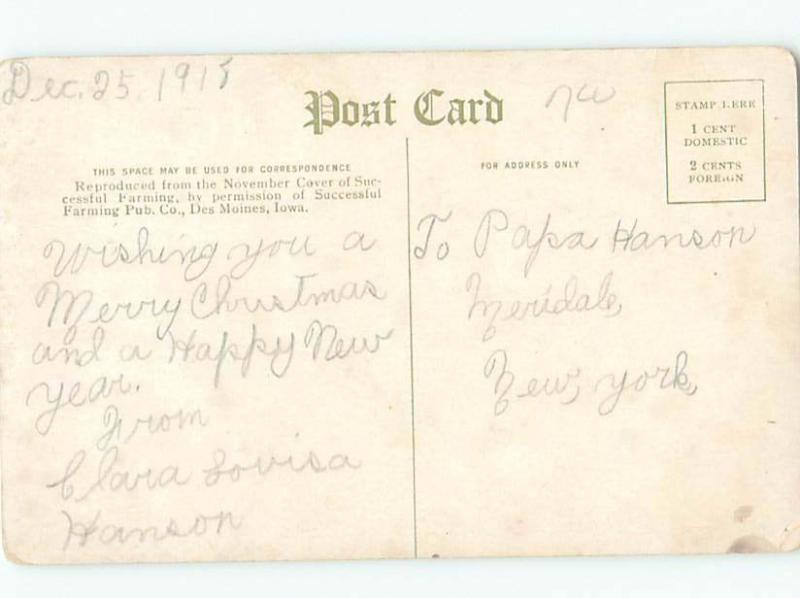 Dec. 25, 1915
Post Card
THIS SPACE MAY BE USED FOR CORRESPONDENCE
Reproduced from the November Cover of Suc-
cessful Farming, by permission of Successful
Farming Pub. Co., Des Moines, Iowa.
Wishing you a
Merry Christmas
and a Happy New
year.
From
Clara Lovisa
Hanson
FOR ADDRESS ONLY
STAMP HERE
1 CENT
DOMESTIC
2 CENTS
FOREIGN
To Papa Hanson
Meridale,
New, york,